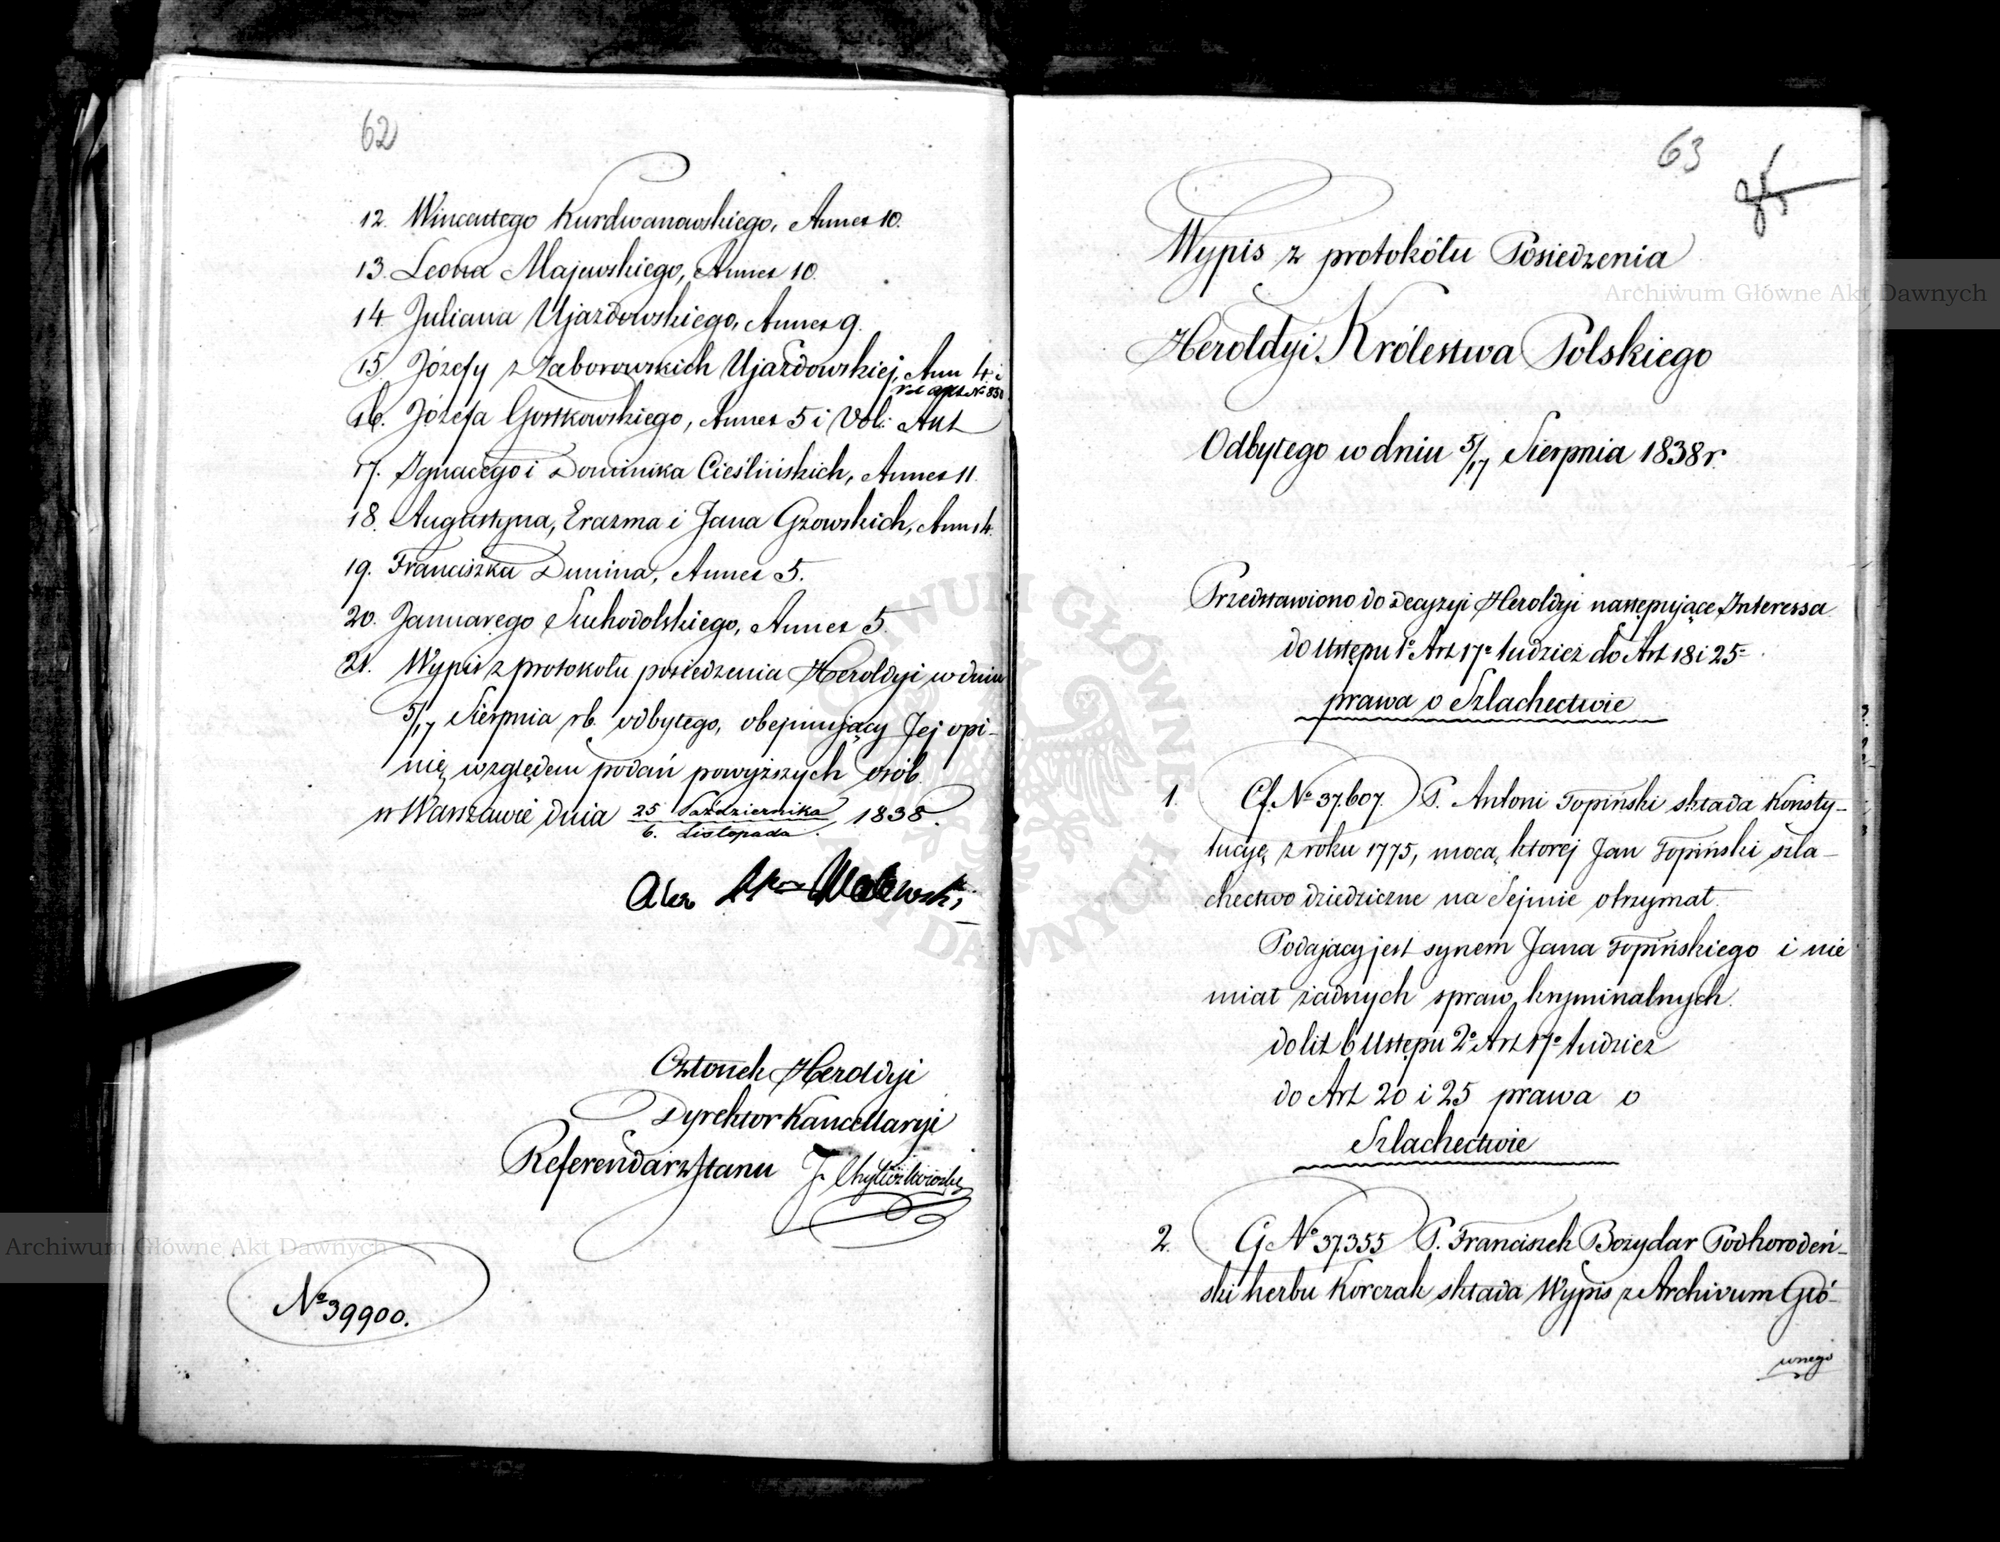 62
12. Wincentego Kurdwanowskiego, Annex 10.
13. Leona Majewskiego, Annex 10.
14. Juliana Ujazdowskiego, Annex 9.
15. Józefy z Zaborowskich Ujazdowskiej, Ann 4. i
16. Józefa Gostkowskiego, Annex 5 i Vol: Akt
17. Ignacego i Dominika Cieślińskich, Annex 11.
18. Augustyna, Erazma i Jana Gzowskich, Ann 4.
19. Franciszka Dunina, Annex 5.
20. Januarego Suchodolskiego, Annex 5.
21. Wypis z protokołu posiedzenia Heroldyi w dniu
5/17 Sierpnia rb. odbytego, obejmujący Jej opi-
nię względem podań powyższych osób.
w Warszawie dnia 25 Października / 6. Listopada 1838.
Członek Heroldyi
Dyrektor Kancellaryi
Referendarz Stanu
№ 39900.
63
Wypis z protokółu Posiedzenia
Heroldyi Królestwa Polskiego
Odbytego w dniu 5/17 Sierpnia 1838 r.
Przedstawiono do decyzyi Heroldyi następujące Interessa
do Ustępu 1º Art 17º tudzież do Art 18 i 25º
prawa o Szlachectwie
1. Cf. № 37.607. P. Antoni Topiński składa Konsty-
tucyę z roku 1775, mocą ktorej Jan Topiński szla-
chectwo dziedziczne na Sejmie otrzymał.
Podający jest synem Jana Topińskiego i nie
miał żadnych spraw kryminalnych.
do lit b Ustępu 2º Art 17º tudzież
do Art 20 i 25 prawa o
Szlachectwie
2. Cf № 37.355 P. Franciszek Bożydar Podhorodeń-
ski herbu Korczak składa Wypis z Archivum Głó-
wnego
Archiwum Główne Akt Dawnych
Archiwum Główne Akt Dawnych
ARCHIWUM GŁÓWNE AKT DAWNYCH